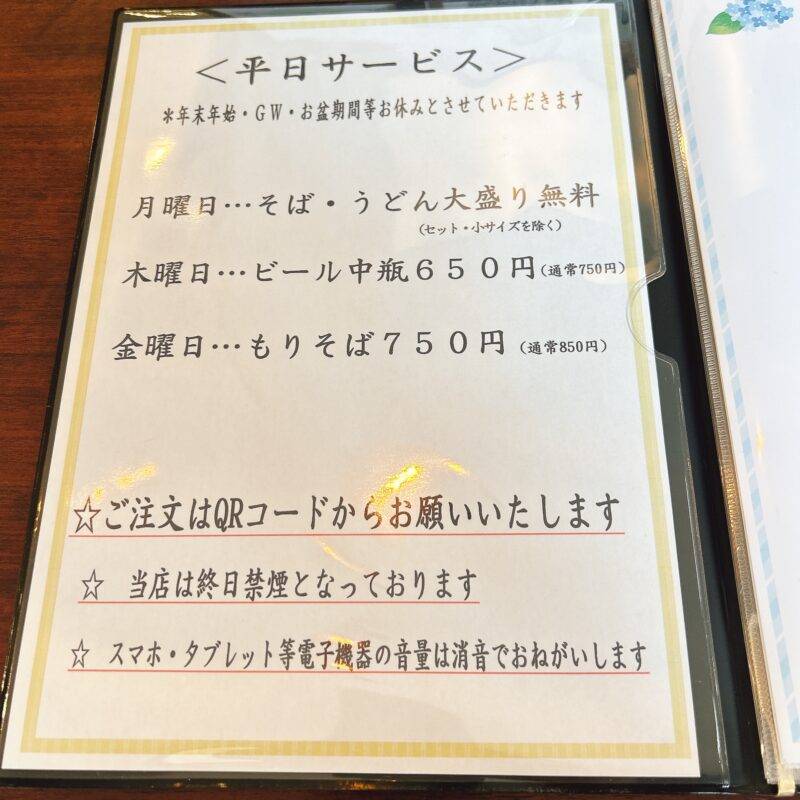 ＜平日サービス＞
※年末年始・GW・お盆期間等お休みとさせていただきます
月曜日…そば・うどん大盛り無料
（セット・小サイズを除く）
木曜日…ビール中瓶６５０円（通常750円）
金曜日…もりそば７５０円（通常850円）
☆ご注文はQRコードからお願いいたします
☆　当店は終日禁煙となっております
☆　スマホ・タブレット等電子機器の音量は消音でおねがいします